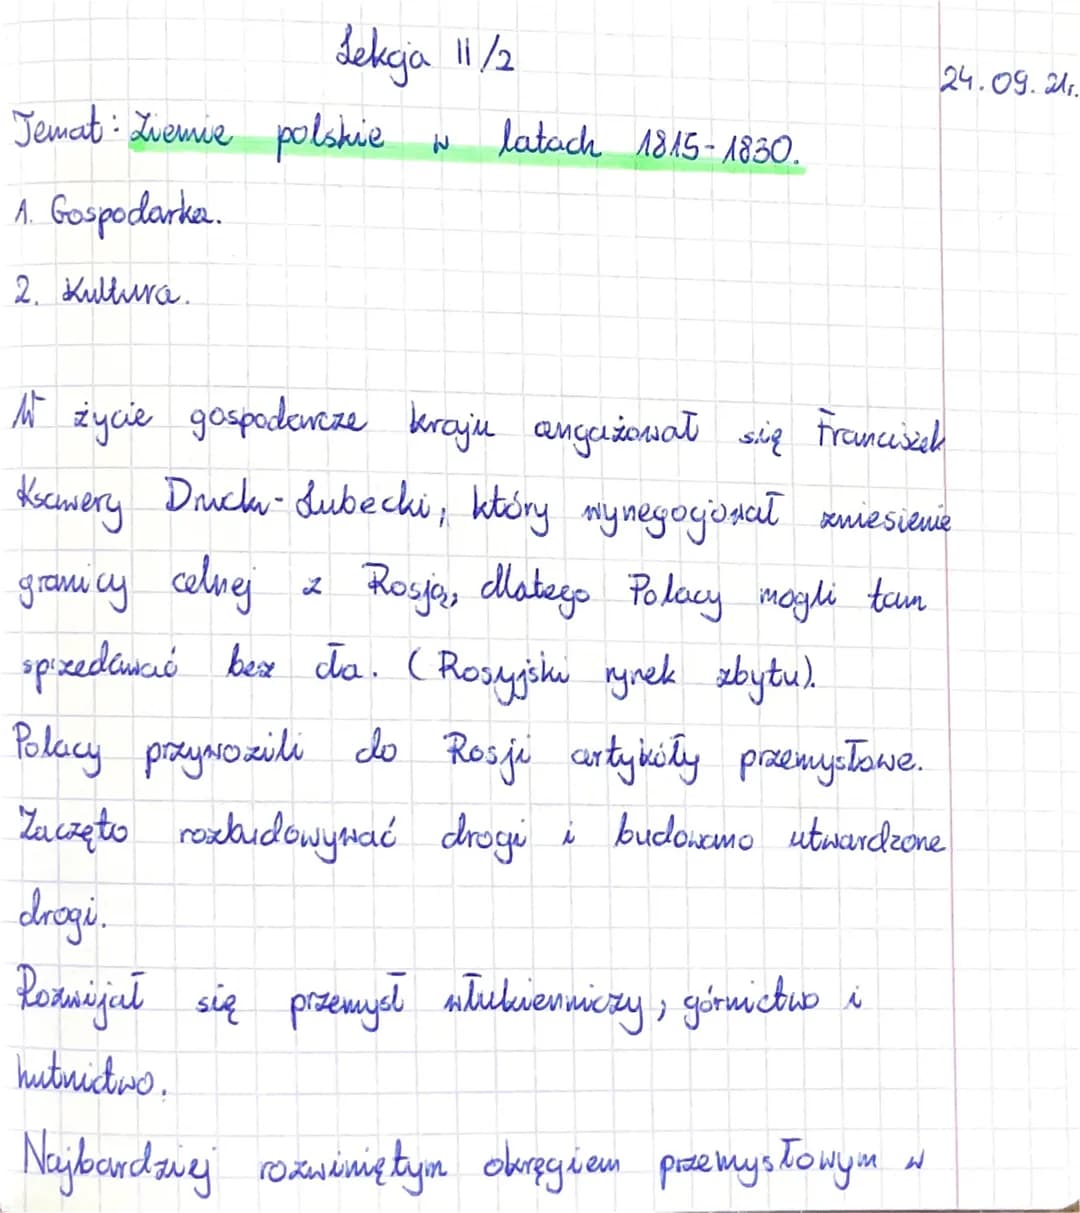 Lekcja 11/2
24.09.21r.
Temat: Ziemie polskie w latach 1815-1830.
1. Gospodarka.
2. Kultura.
W życie gospodarcze kraju angażował się Franciszek
Ksawery Drucki-Lubecki, który wynegocjował zniesienie
granicy celnej z Rosją, dlatego Polacy mogli tam
sprzedawać bez cła. (Rosyjski rynek zbytu).
Polacy przywozili do Rosji artykóły przemysłowe.
Zaczęto rozbudowywać drogi i budowano utwardzone
drogi.
Rozwijał się przemysł włukienniczy, górnictwo i
hutnictwo.
Najbardziej rozwiniętym okręgiem przemysłowym w